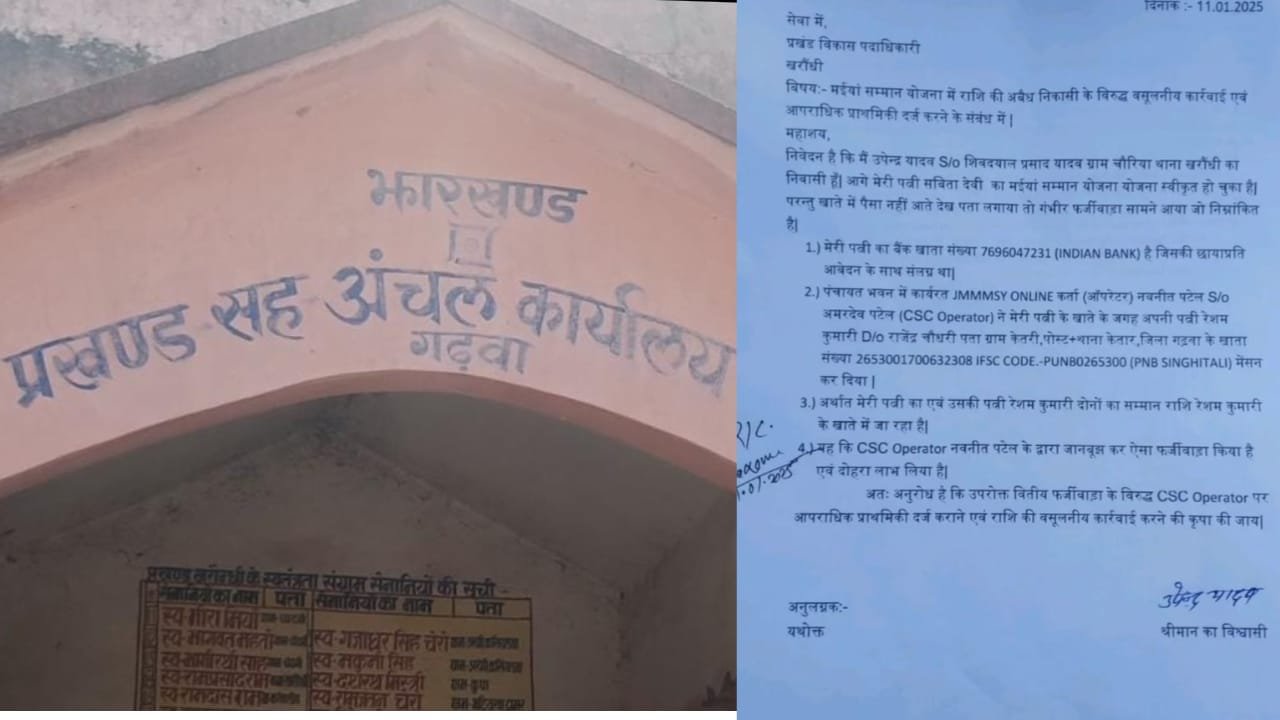 झारखण्ड
प्रखण्ड सह अंचल कार्यालय
गढ़वा
प्रखण्ड खरौन्धी के स्वतंत्रता संग्राम सेनानियों की सूची
सेनानियों का नाम पता सेनानियों का नाम पता
स्व॰ भागवत महतो स्व॰ गजाधर सिंह चेरो
स्व॰
स्व॰ रामप्रसाद राम स्व॰ दशरथ मिस्त्री
स्व॰ रामदास राम स्व॰
दिनांक :- 11.01.2025
सेवा में,
प्रखंड विकास पदाधिकारी
खरौंधी
विषय:- मईयां सम्मान योजना में राशि की अबैध निकासी के विरुद्ध वसूलनीय कार्रवाई एवं
आपराधिक प्राथमिकी दर्ज करने के संबंध में |
महाशय,
निवेदन है कि मैं उपेन्द्र यादव S/o शिवदयाल प्रसाद यादव ग्राम चौरिया थाना खरौंधी का
निवासी हूँ| आगे मेरी पत्नी सबिता देवी का मईयां सम्मान योजना योजना स्वीकृत हो चुका है|
परन्तु खाते में पैसा नहीं आते देख पता लगाया तो गंभीर फर्जीवाड़ा सामने आया जो निम्नांकित
है|
1.) मेरी पत्नी का बैंक खाता संख्या 7696047231 (INDIAN BANK) है जिसकी छायाप्रति
आवेदन के साथ संलग्न था|
2.) पंचायत भवन में कार्यरत JMMMSY ONLINE कर्ता (ऑपरेटर) नवनीत पटेल S/o
अमरदेव पटेल (CSC Operator) ने मेरी पत्नी के खाते के जगह अपनी पत्नी रेशम
कुमारी D/o राजेंद्र चौधरी पता ग्राम केतरी,पोस्ट+थाना केतार,जिला गढ़वा के खाता
संख्या 2653001700632308 IFSC CODE.-PUNB0265300 (PNB SINGHITALI) मेंसन
कर दिया |
3.) अर्थात मेरी पत्नी का एवं उसकी पत्नी रेशम कुमारी दोनों का सम्मान राशि रेशम कुमारी
के खाते में जा रहा है|
4.) यह कि CSC Operator नवनीत पटेल के द्वारा जानबूझ कर ऐसा फर्जीवाड़ा किया है
एवं दोहरा लाभ लिया है|
अतः अनुरोध है कि उपरोक्त वितीय फर्जीवाड़ा के विरुद्ध CSC Operator पर
आपराधिक प्राथमिकी दर्ज कराने एवं राशि की वसूलनीय कार्रवाई करने की कृपा की जाय|
उपेन्द्र यादव
अनुलग्नक:-
यथोक्त
श्रीमान का विश्वासी